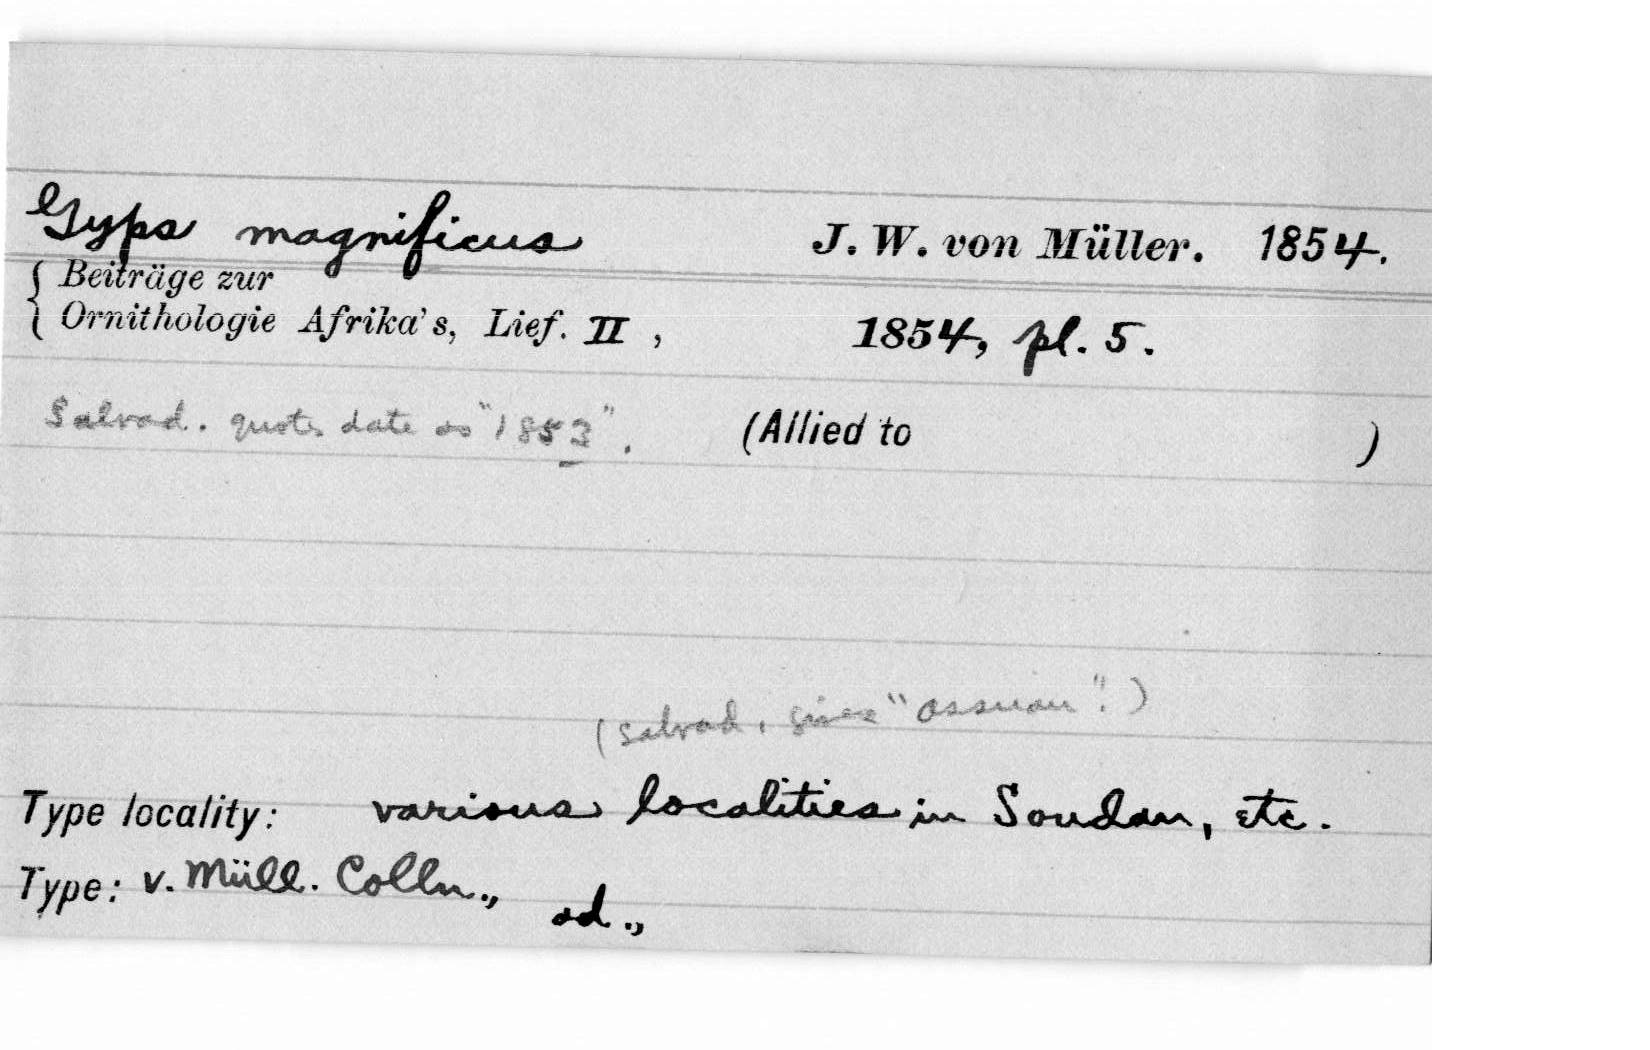 Gyps magnificus J. W. von Müller. 1854.
{ Beiträge zur
Ornithologie Afrika's, Lief. II, 1854, pl. 5.
Salvad. quotes date as "1853". (Allied to )
(Salvad. gives "Assuan".)
Type locality: various localities in Soudan, etc.
Type: v. Müll. Colln., ad.,